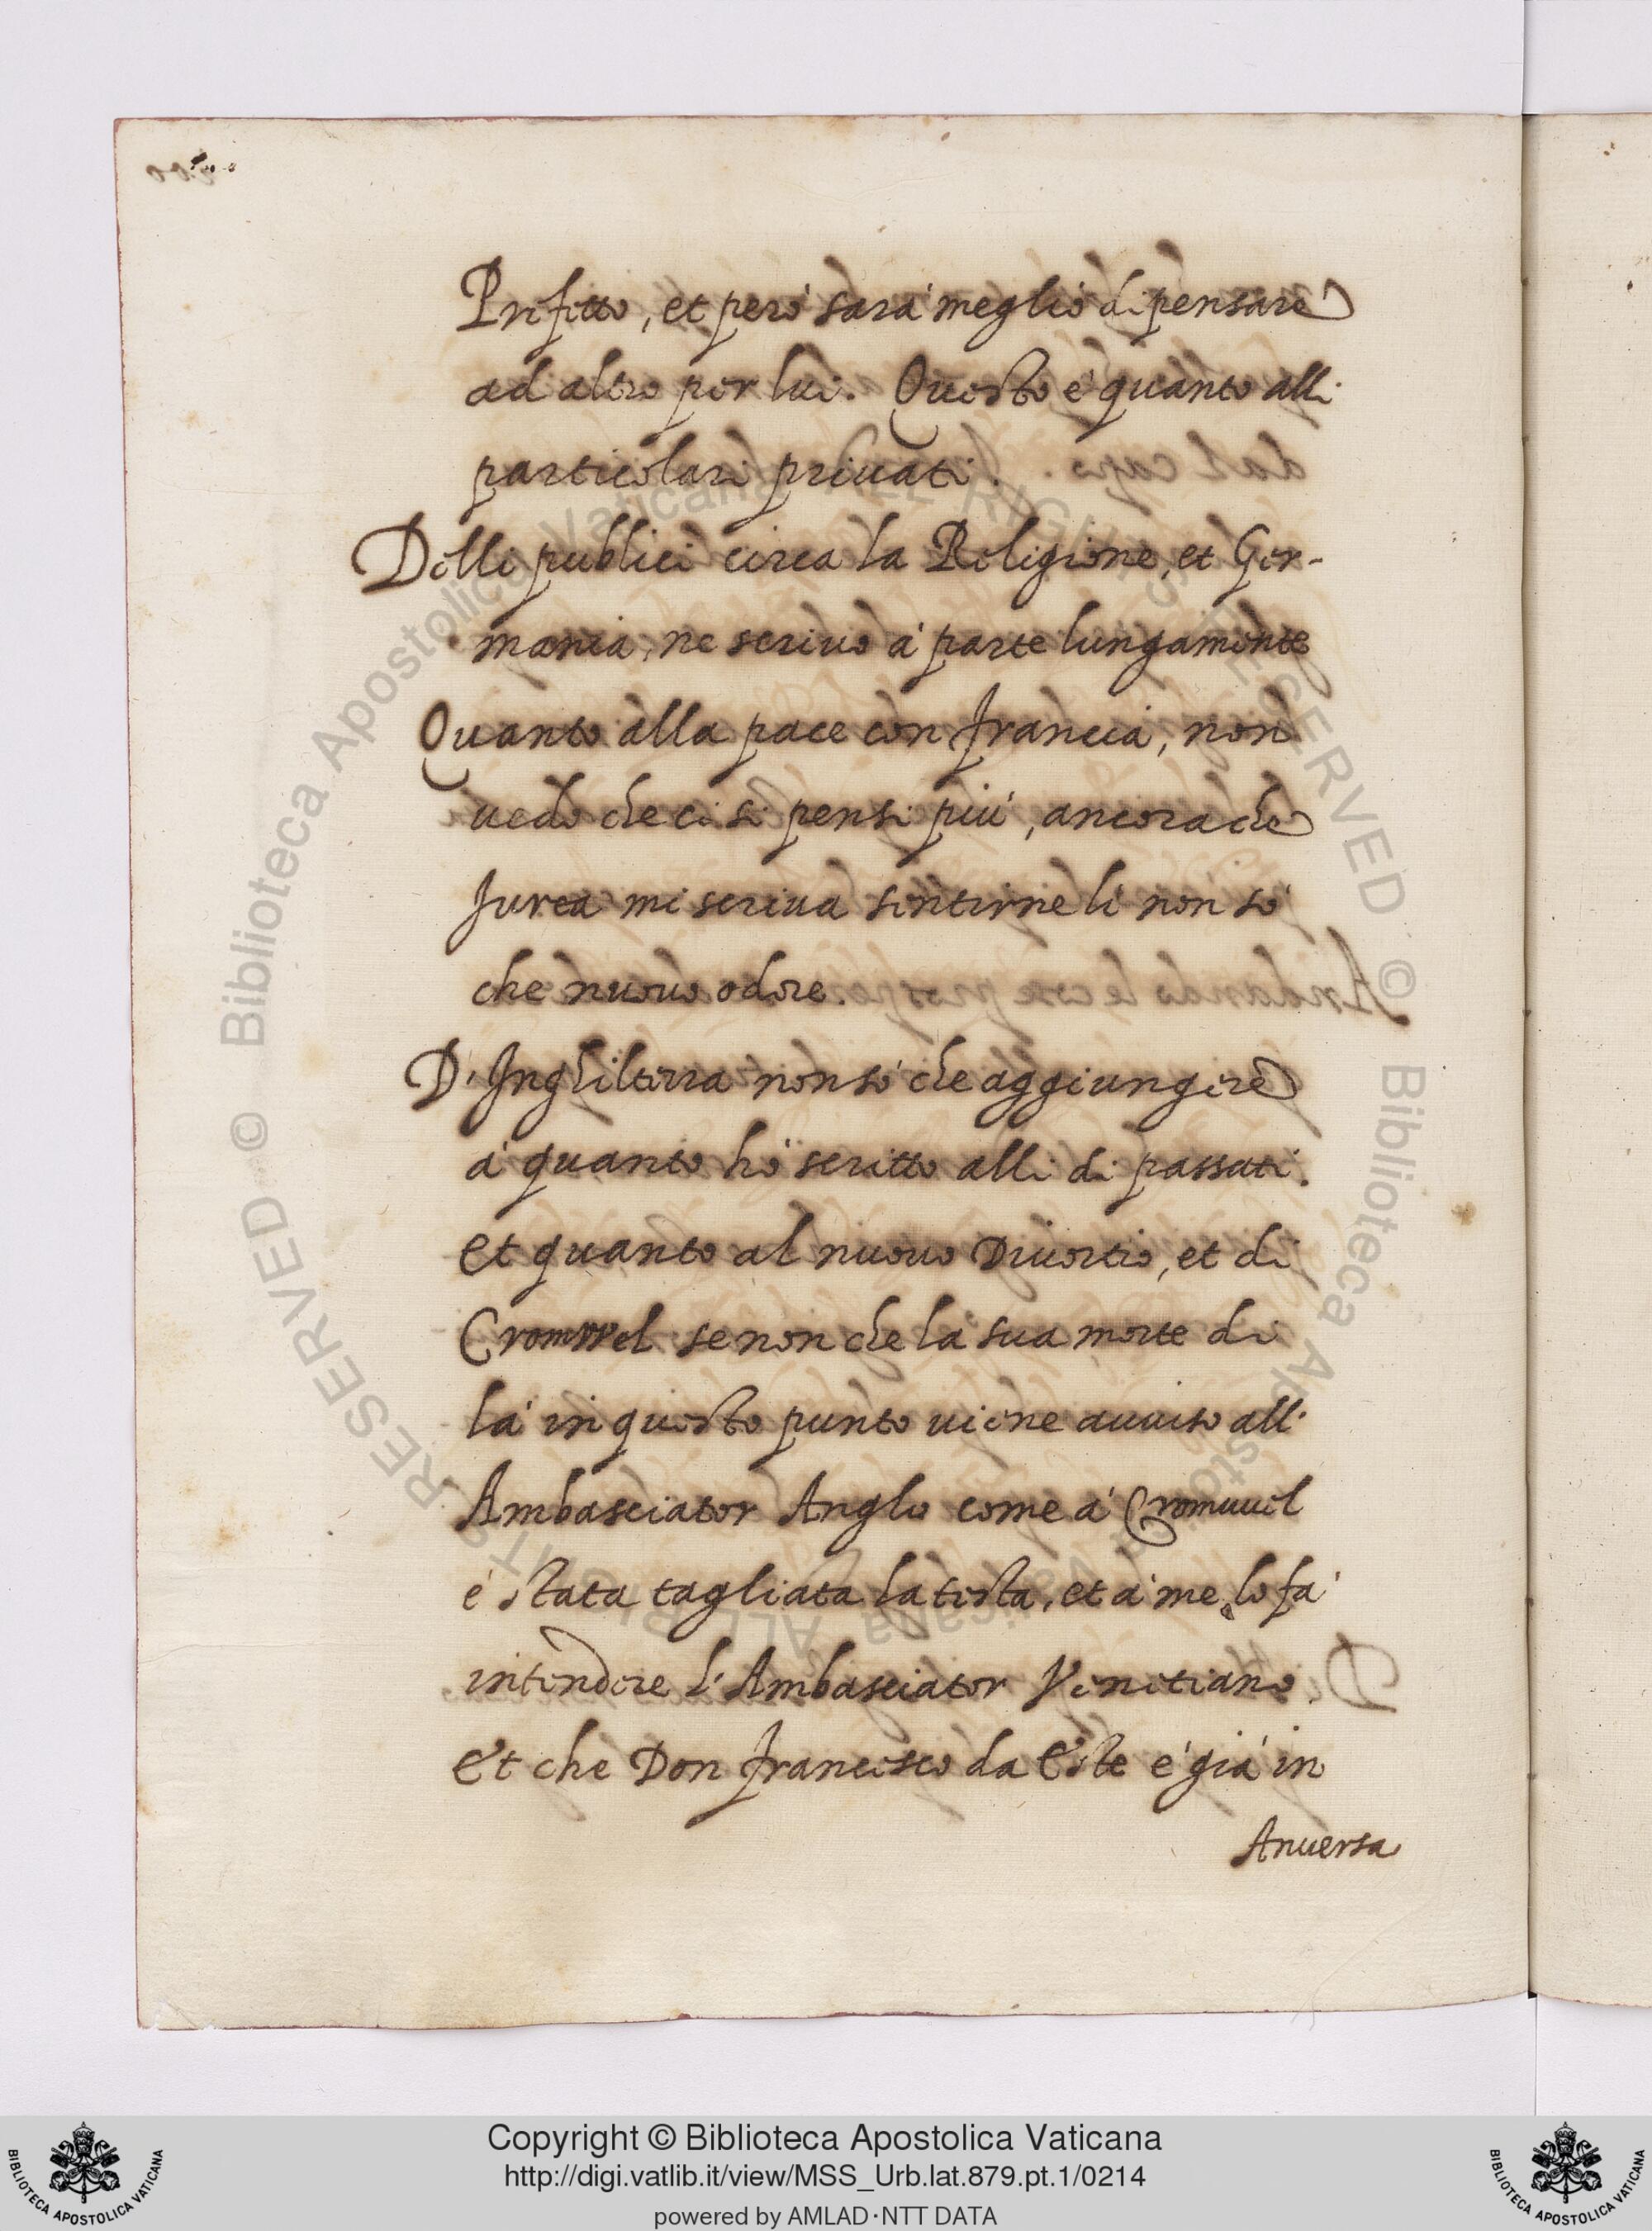 Prefitto, et però sarà meglio di pensare
ad altro per lui. Questo è quanto alli
particolari priuati.
Delli publici circa la Religione, et Ger-
mania, ne scriuo à parte lungamente
Quanto alla pace con francia, non
uedo che ci si pensi più, ancora che
mi scriua sentirne lì non sò
che nuouo odore.
D'Inghilterra non sò che aggiungere
à quanto hò scritto alli dì passati.
et quanto al nuouo Diuortio, et di
Cromwel se non che la sua morte di
là in questo punto uiene auuiso all'
Ambasciator Anglo come à Cromuuel
è stata tagliata la testa, et à me lo fà
intendere l'Ambasciator Venetiano
Et che Don francesco da Este è già in
Anuersa
Copyright © Biblioteca Apostolica Vaticana
http://digi.vatlib.it/view/MSS_Urb.lat.879.pt.1/0214
powered by AMLAD·NTT DATA
BIBLIOTECA APOSTOLICA VATICANA
BIBLIOTECA APOSTOLICA VATICANA